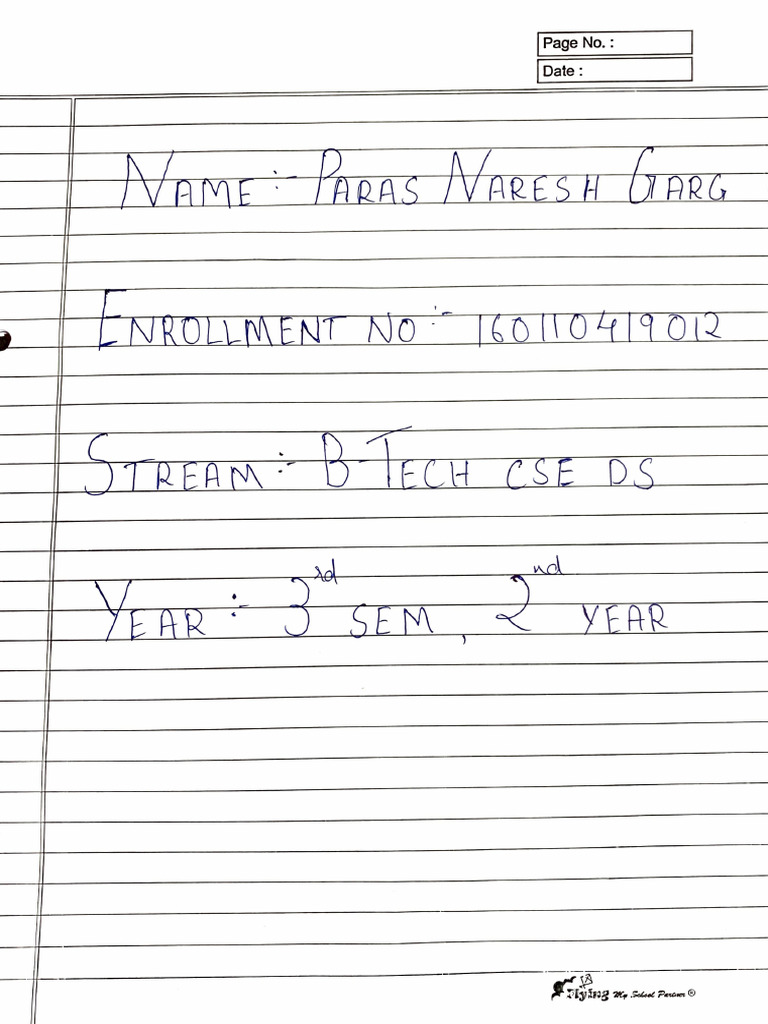 Page No. :
Date :
NAME :- PARAS NARESH GARG
ENROLLMENT NO :- 160110419012
STREAM :- B-TECH CSE DS
YEAR :- 3rd SEM, 2nd YEAR
Flying My School Partner ®